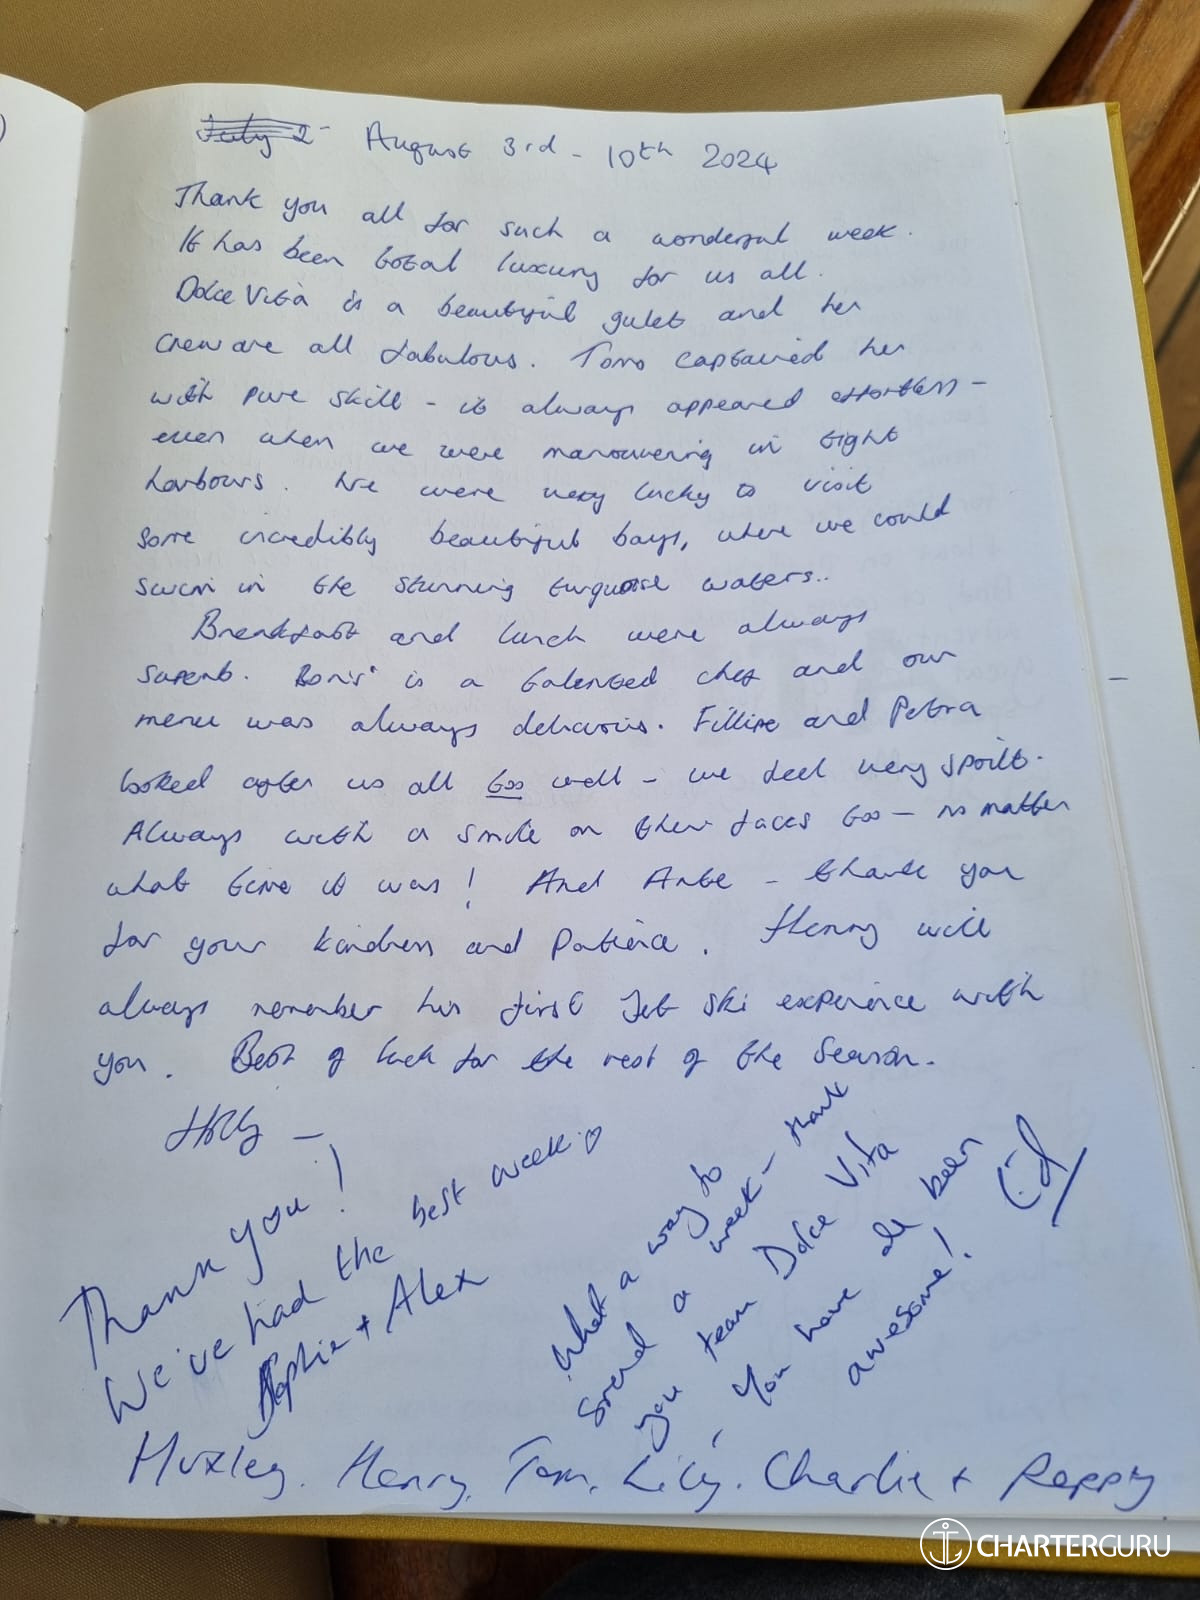 July 2- August 3rd - 10th 2024
Thank you all for such a wonderful week.
It has been total luxury for us all.
Dolce Vita is a beautiful gulet and her
crew are all fabulous. Tomo captained her
with pure skill - it always appeared effortless -
even when we were manouvering in tight
harbours. We were very lucky to visit
some incredibly beautiful bays, where we could
swim in the stunning turquoise waters..
Breakfast and lunch were always
superb. Boris is a talented chef and our
menu was always delicious. Fillipe and Petra
looked after us all too well - we feel very spoilt.
Always with a smile on their faces too - no matter
what time it was! And Ante - thank you
for your kindness and patience. Henry will
always remember his first Jet ski experience with
you. Best of luck for the rest of the season.
Holly -
Thank you!
We've had the best week
Sophie + Alex
What a way to
spend a week - thank
you team Dolce Vita
, You have all been
awesome!
Huxley. Henry. Tom. Lily. Charlie + Poppy
CHARTERGURU